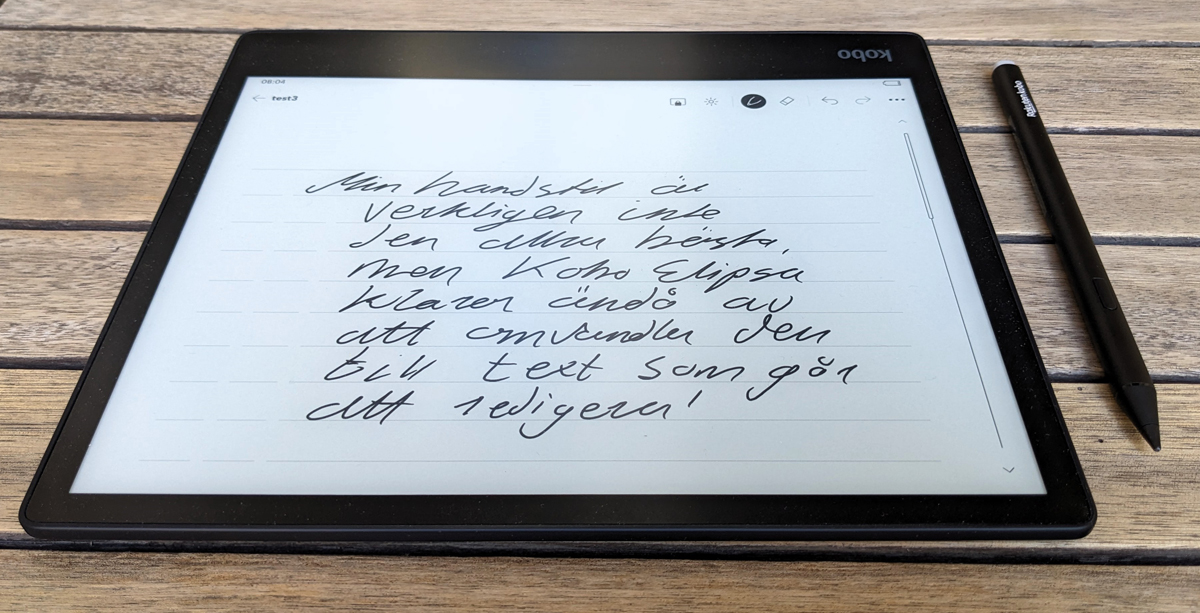 kobo
08:04
test3
Rakuten kobo
Min handstil är
verkligen inte
den allra bästa,
men Kobo Elipsa
klarar ändå av
att omvandla den
till text som går
att redigera!